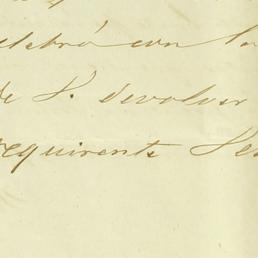 celebró con la
de S. devolver
requirente Se